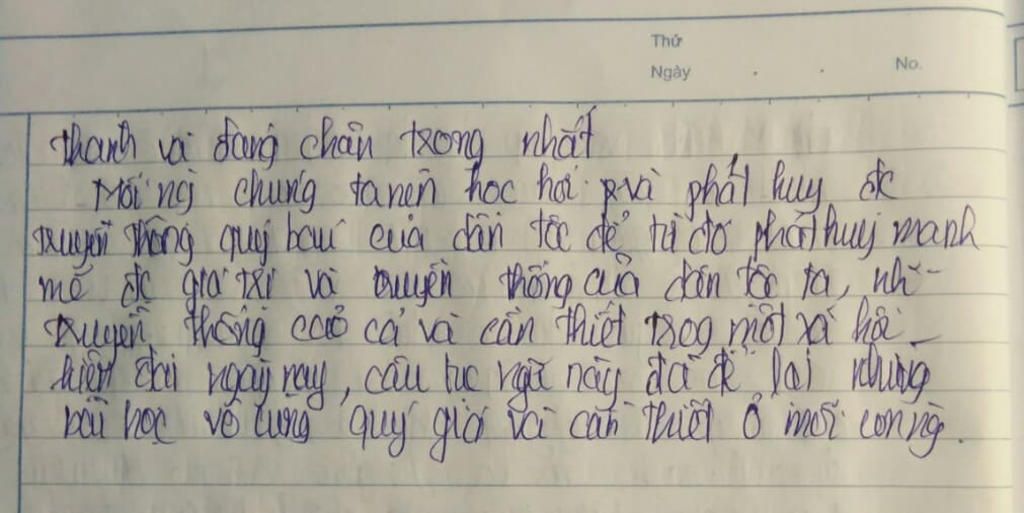 Thứ
Ngày . . No.
thành và đáng chân trọng nhất
Mỗi ng chúng ta nên học hỏi và phát huy đc
truyền thống quý báu của dân tộc để từ đó phát huy mạnh
mẽ đc giá trị và truyền thống của dân tộc ta, nh~
truyền thống cao cả và cần thiết trog một xã hội
hiện đại ngày nay, câu tục ngữ này đã để lại những
bài học vô cùng quý giá và cần thiết ở mỗi con ng.